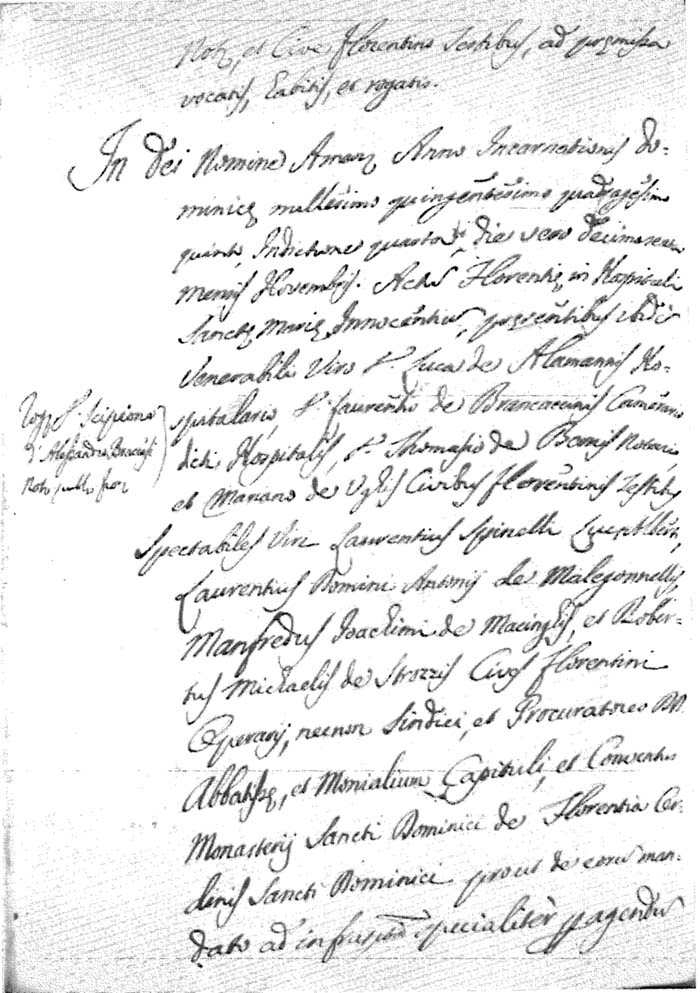 Notˢ, et Cive Florentino Testibus, ad premissa
vocatis, habitis, et rogatis.
In Dei Nomine Amen Anno Incarnationis Do-
minicę millesimo quingentesimo quadragesimo
quinto, Indictione quarta, die vero decimasexta
Mensis Novembris. Actũ Florentię, in Hospitali
Sanctę Marię Innocentiũ, presentibus ibidẽ
Venerabili Viro Luca de Alamannis Ho-
spitalario, Laurentio de Brancaccinis Camerario
dicti Hospitalis, Thomasio de Notario,
et Mariano de Uglis Civibus Florentinis Testibus
Spectabiles Viri Laurentius Spinelli
Laurentius Domini Antonij de Malegonnellis,
Manfredus Joachimi de Macinghis, et Rober-
tus Michaelis de Strozzis Cives Florentini
Operarij, necnon Sindici, et Procuratores RR.
Abbatissę, et Monialium Capituli, et Conventus
Monasterij Sancti Dominici de Florentia Or-
dinis Sancti Dominici prout de eorũ man-
dato ad infrasptã specialiter pagendũ
Rogˢ Sʳ Scipione
d'Alessandro Braccesi
Notˢ pubb. fior.